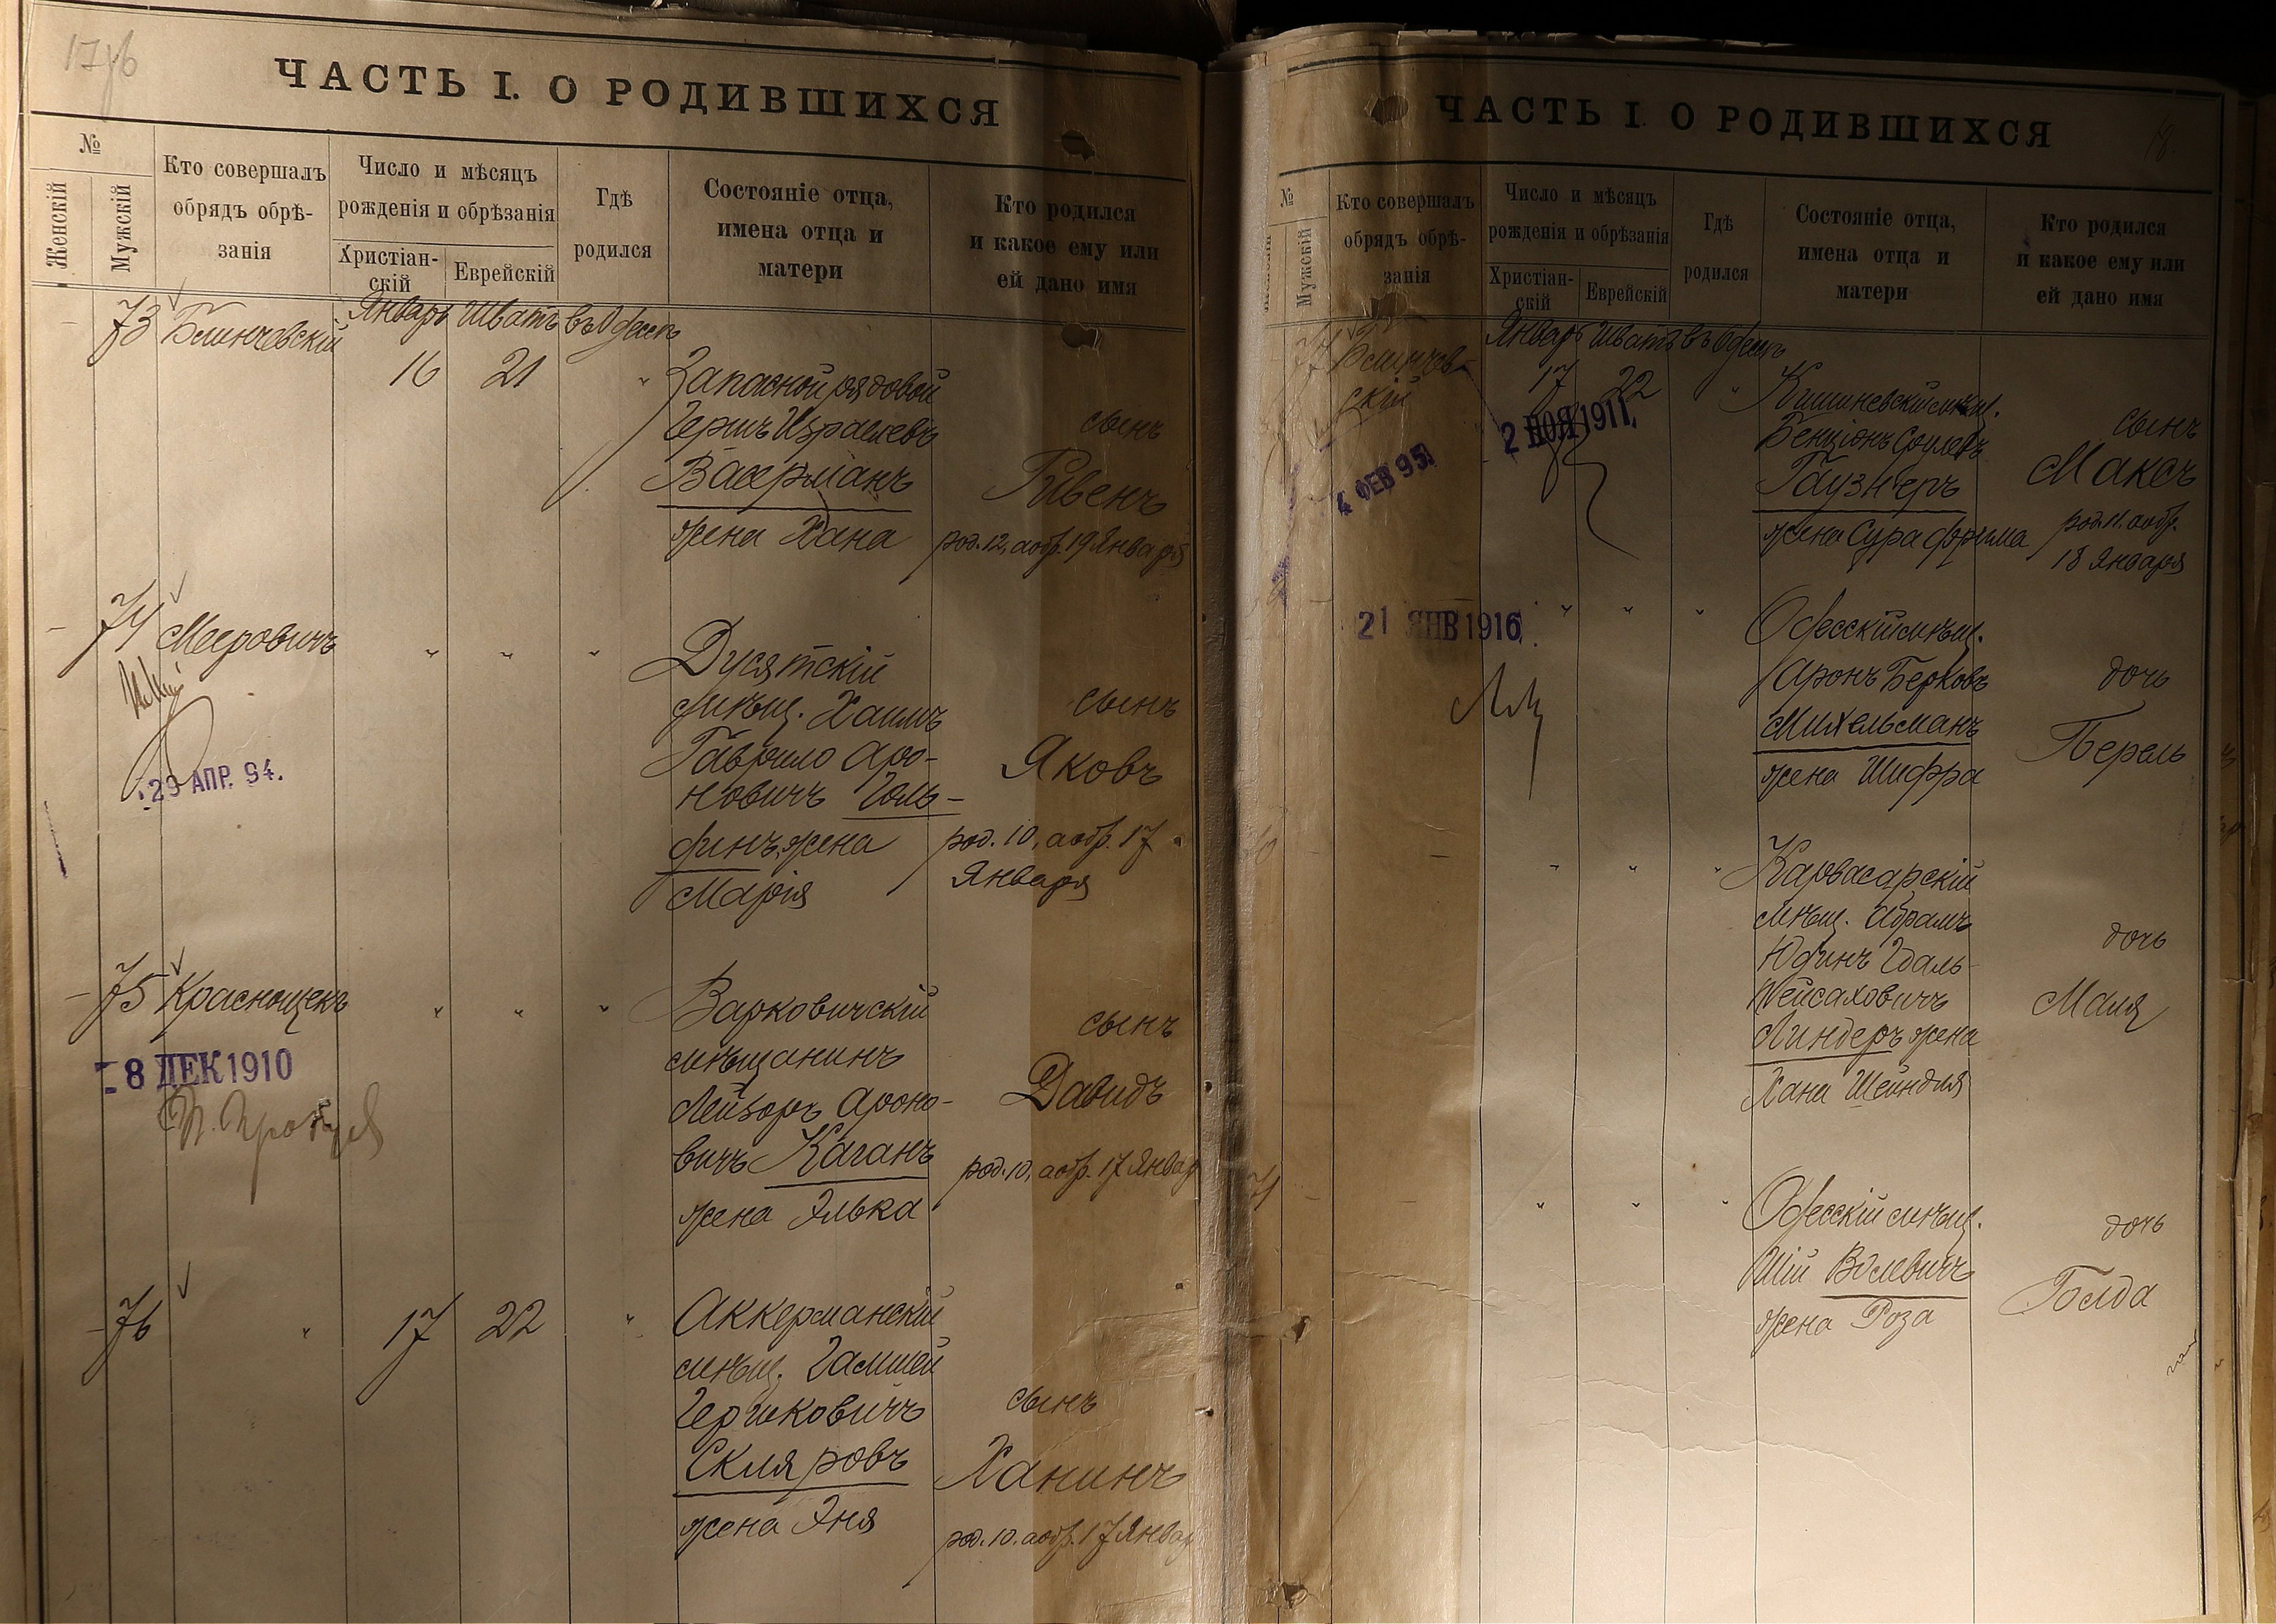 ЧАСТЬ I. О РОДИВШИХСЯ
№
Женскій
Мужскій
Кто совершалъ
обрядъ обрѣ-
занія
Число и мѣсяцъ
рожденія и обрѣзанія
Христіан-
скій
Еврейскій
Гдѣ
родился
Состояніе отца,
имена отца и
матери
Кто родился
и какое ему или
ей дано имя
73 Блинчевскій Январь Шватъ въ Одессѣ
16 21 " Запасной рядовой
Гершъ Израилевъ сынъ
Васерманъ Рувенъ
жена Хана род. 12, а обр. 19 Января
74 Мееровичъ " " " Дусятскій
мѣщ. Хаимъ сынъ
Гаврило Аро- Яковъ
новичъ Голь-
29 АПР. 94.
финъ, жена род. 10, а обр. 17
Марія Января
75 Краснощекъ " " " Варковичскій
мѣщанинъ сынъ
8 ДЕК 1910
Лейзоръ Ароно- Давидъ
вичъ Каганъ род. 10, а обр. 17 Январ
жена Элька
76 " 17 22 " Аккерманскій
мѣщ. Гамшей
Гершковичъ сынъ
Скляровъ Ханинъ
жена Эня род. 10. а обр. 17 Январ
ЧАСТЬ I. О РОДИВШИХСЯ
№
Мужскій
Кто совершалъ
обрядъ обрѣ-
занія
Число и мѣсяцъ
рожденія и обрѣзанія
Христіан-
скій
Еврейскій
Гдѣ
родился
Состояніе отца,
имена отца и
матери
Кто родился
и какое ему или
ей дано имя
77 Блинчев- Январь Шватъ въ Одессѣ
скій 17 22 " Кишиневскій мѣщ.
2 НОЯ 1911
4 ФЕВ 95
Бенціонъ Срулевъ сынъ
Гаузнеръ Максъ
жена Сура Фрима род. 11. а обр.
18 Января
21 ЯНВ 1916
" " " Одесскій мѣщ.
Аронъ Берковъ дочь
Михельманъ Перель
жена Шифра
" " " Карвасарскій
мѣщ. Абрамъ
Юдинъ Гдаль- дочь
Пейсаховичъ Маля
Линдеръ жена
Хана Шейндля
" " " Одесскій мѣщ.
дочь
жена Роза Голда